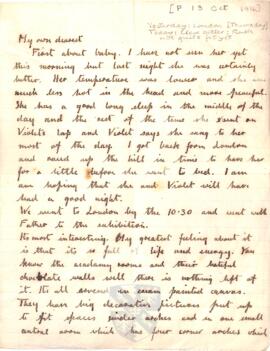 [P 13 Oct 1916]
Yesterday: London [Thursday]
Today: Cleve better; Ruth
not quite fit yet
My own dearest
First about baby. I have not seen her yet
this morning but last night she was certainly
better. Her temperature was lower and she was
much less hot in the head and more peaceful.
She has a good long sleep in the middle of the
day and the rest of the time she spent on
Violet's lap and Violet says she sang to her
most of the day. I got back from London
and raced up the hill in time to have her
for a little before she went to bed. I am
am hoping that she and Violet will have
had a good night.
We went to London by the 10:30 and went with
Father to the exhibition.
Its most interesting. My greatest feeling about it
is that its full of life and energy. You
know the academy rooms and their hateful
chocolate walls well there is nothing left of
it. Its all covered in cream painted canvas.
They have big decorative pictures put up
to fit spaces under arches and in one small
central room which has four corner arches which